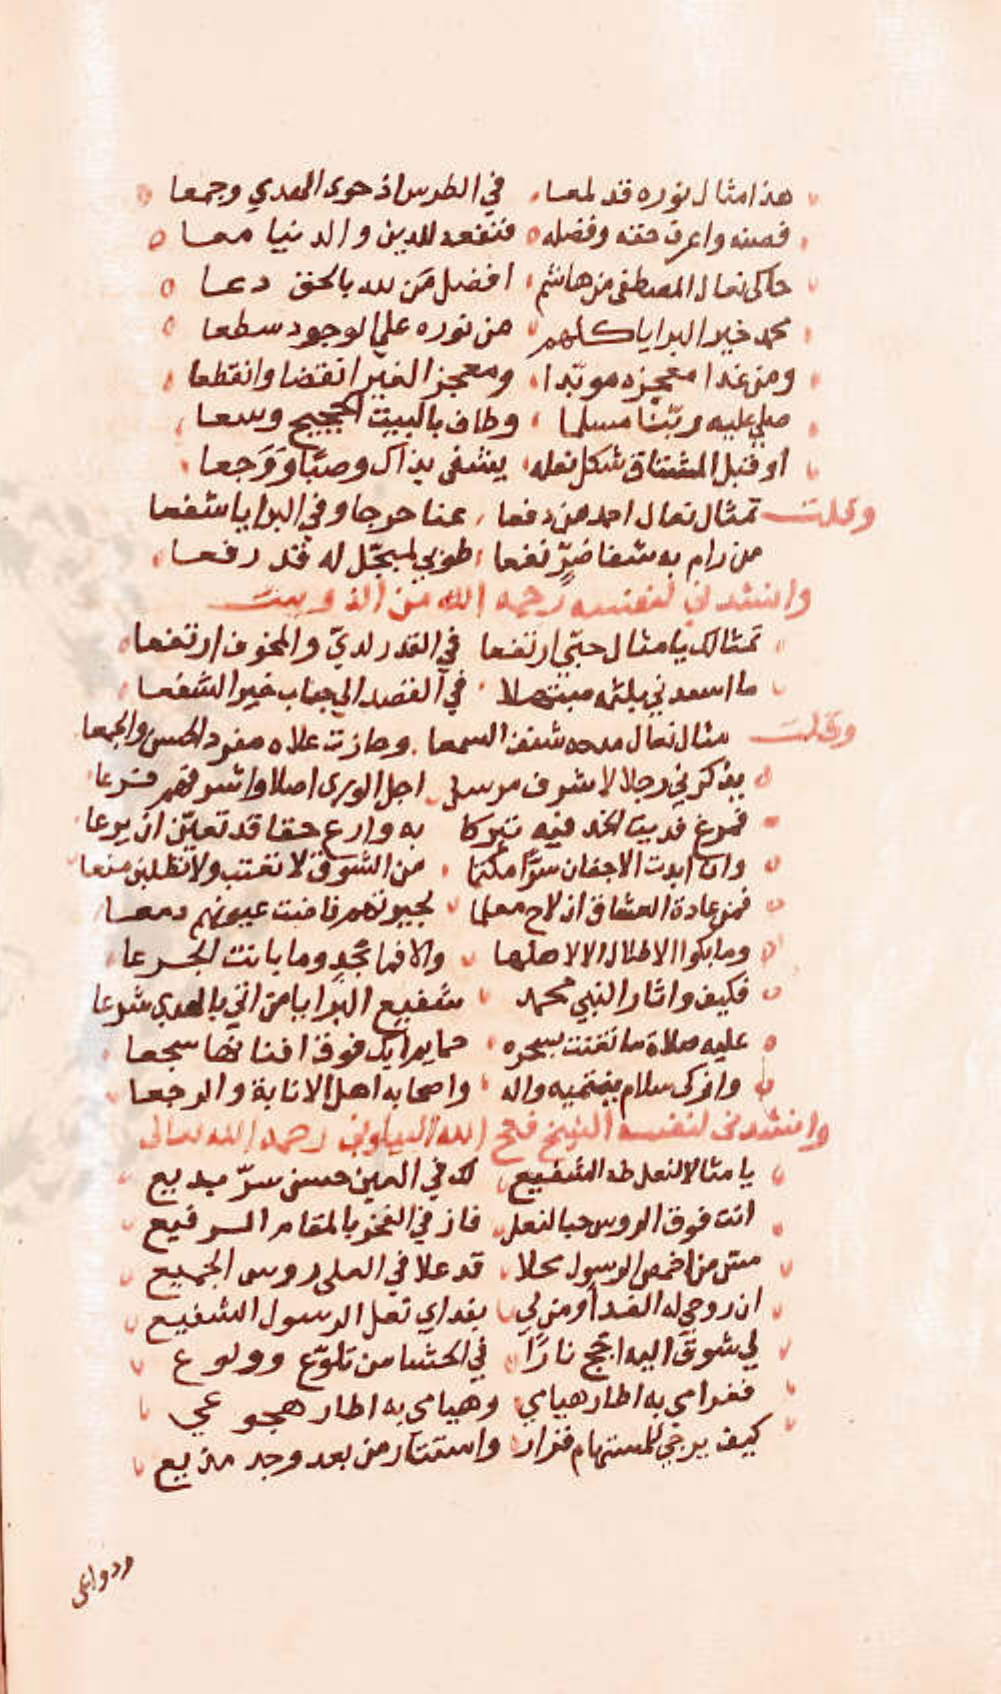 هذا مثال نوره قد لمعا في الطرس اذ حوى الهدي وجمعا
فصنه واعرف حقه وفضله فنفعه للدين والدنيا معا
حاكى نعال المصطفى من هاشم افضل من لله بالحق دعا
محمد خير البرايا كلهم من نوره على الوجود سطعا
ومن غدا معجزه موبّدا ومعجز الغير انقضا وانقطعا
صلى عليه ربّنا مسلما وطاف بالبيت الحجيج وسعا
او قبل المشتاق شكل نعله يشفى بذاك وصبًا ووجعا
وقلت تمثال نعال احمد من دفعا عنا حرجا وفي البرايا شفعا
من رام به شفا ضرّ نفعا طوبى لمبجّل له قد رفعا
وانشدني لنفسه رحمه الله من الذوبيت
تمثالك يا مثال حبّي ارتفعا في القدر لديّ والمخوف ارتفعا
ما اسعدني بلثمه مبتهلا في القصد الى جناب خير الشفعا
وقلت مثال نعال مدحه شنف السمعا وحازت علاه مفرد الحسن والجمعا
يذكرني رجلا لاشرف مرسل اجل الورى اصلا واشرفهم فرعا
فمرغ فديت الخد فيه تبركا به وارع حقا قد تعيّن ان يرعا
وان ابدت الاجفان سرًّا مكتما من الشوق لا تعتب ولا تطلبن منعا
فمن عادة العشاق ان لاح معلما لحبوبهم فاضت عيونهم دمعا
وما بكوا الاطلال الا لاهلها والا فما نجد وما بانت الجرعا
فكيف واثار النبي محمد شفيع البرايا من اتى بالهدي شرعا
عليه صلاة ما تغنت بسحره حمايم ايك فوق افنانها سجعا
وازكى سلام ينتميه واله واصحابه اهل الانابة والرجعا
وانشدنى لنفسه الشيخ فتح الله البيلوني رحمه الله تعالى
يا مثالا لنعل طه الشفيع لك في العين حسن سرّ بديع
انت فوق الروس حبا لنعل فاز في الفخر بالمقام الرفيع
مس من اخمص الرسول محلا قد علا في العلى روس الجميع
ان روحي له الفدا ومن لي بفداي نعل الرسول الشفيع
لي شوق اليه اجّج نارًا في الحشا من تلوّع وولوع
فغرامى به اطار هيامي وهيامى به اطار هجوعي
كيف يرجى للمستهام قرار واستتار من بعد وجد مذيع